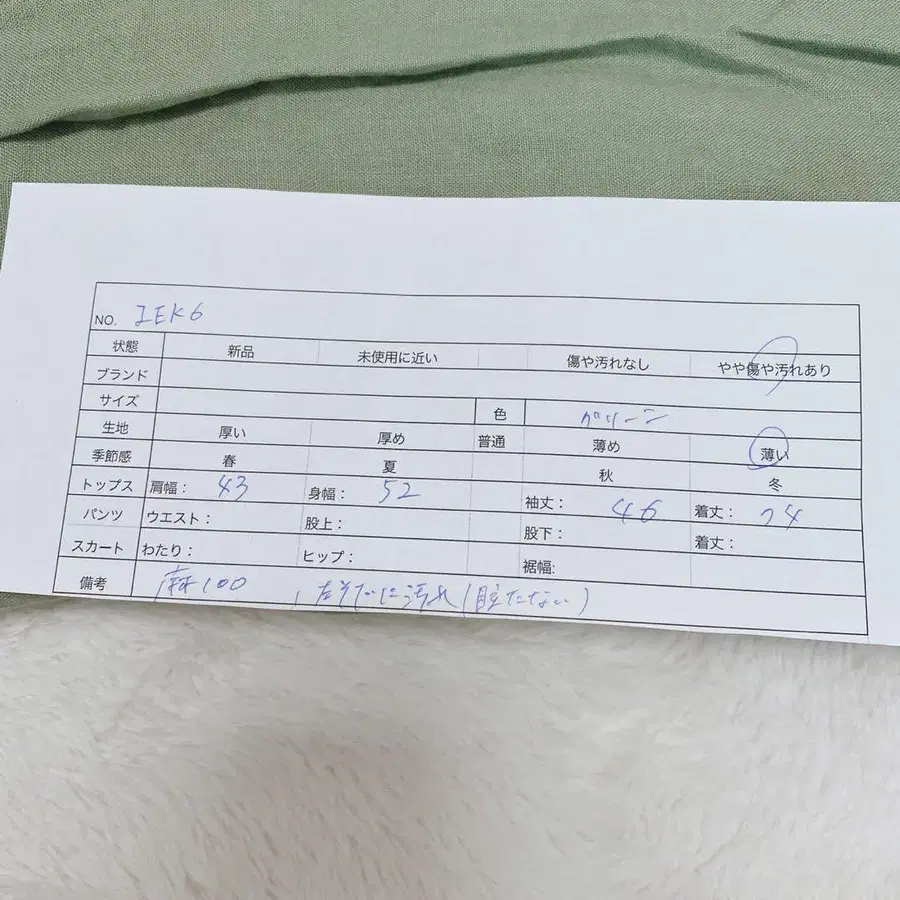 NO. IEK6
状態 新品 未使用に近い 傷や汚れなし やや傷や汚れあり
ブランド
サイズ 色 グリーン
生地 厚い 厚め 普通 薄め 薄い
季節感 春 夏 秋 冬
トップス 肩幅： 43 身幅： 52 袖丈： 46 着丈： 74
パンツ ウエスト： 股上： 股下： 着丈：
スカート わたり： ヒップ： 裾幅:
備考 麻100 , 左そでに汚れ(目立たない)